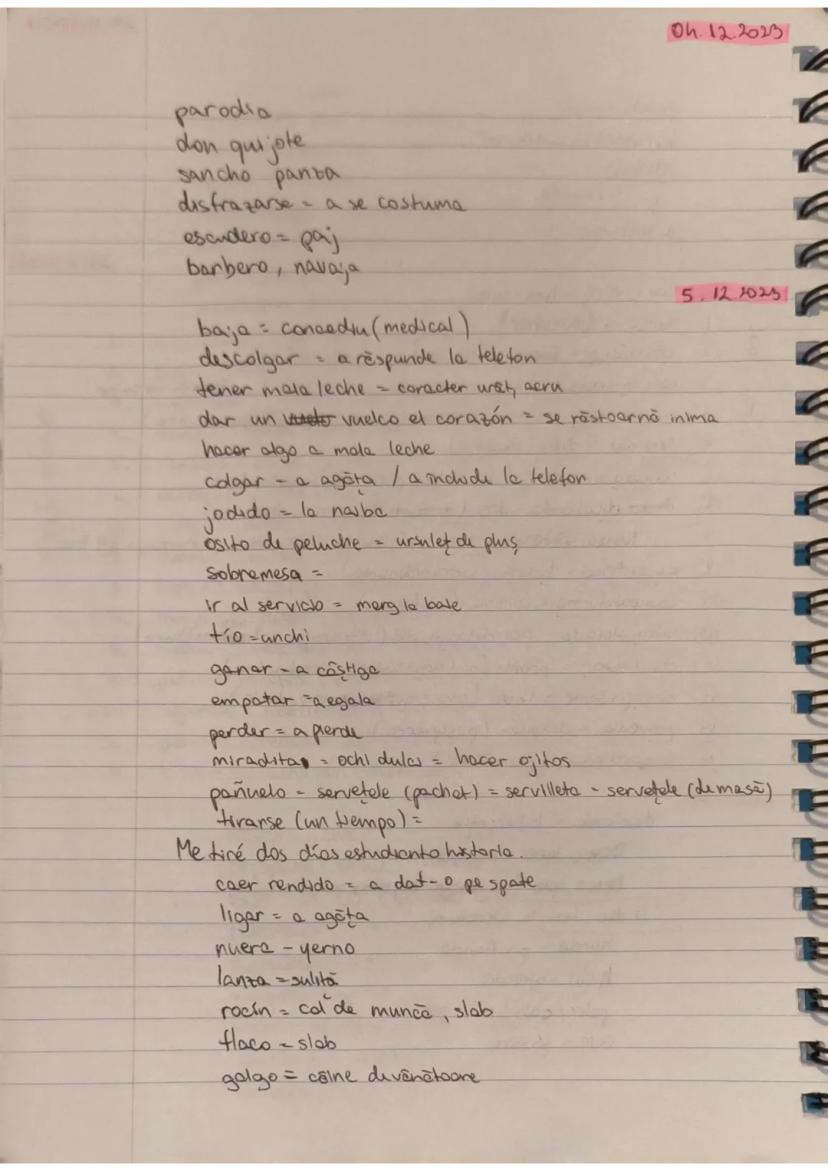 04.12.2023
parodia
don quijote
sancho panza
disfrazarse = a se costuma
escudero = paj
barbero, navaja
5.12.2023
baja = concediu (medical)
descolgar = a răspunde la telefon
tener mala leche = caracter urât, acru
dar un vuelco el corazón = se răstoarnă inima
hacer algo a mala leche
colgar - a agăța / a include la telefon
jodido = la naiba
osito de peluche = ursuleț de pluș
sobremesa =
ir al servicio = merg la baie
tío = unchi
ganar - a câștiga
empatar = a egala
perder = a pierde
miradita = ochi dulci = hacer ojitos
pañuelo - servețele (pachet) = servilleta - servețele (de masă)
tirarse (un tiempo) =
Me tiré dos días estudianto historia.
caer rendido = a dat-o pe spate
ligar = a agăța
nuera - yerno
lanza = suliță
rocín = cal de muncă, slab
flaco = slab
galgo = câine de vânătoare